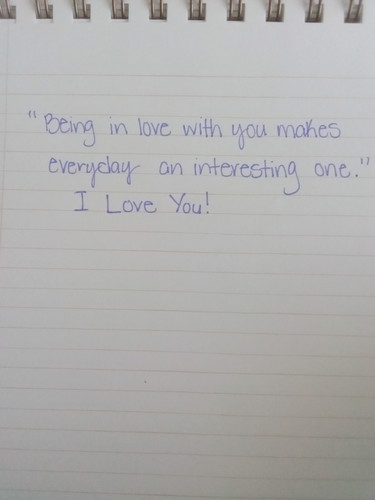 "Being in love with you makes
everyday an interesting one."
I Love You!